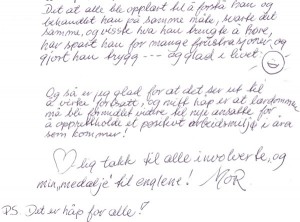 Det at alle ble opplært til å forstå han og
behandlet han på samme måte, svarte det
samme, og visste hva han trengte å høre,
har spart han for mange frustrasjoner og
gjort han trygg --- og glad i livet.
Og så er jeg glad for at det ser ut til
å virke forbsatt, og mitt håp er at lærdommen
må bli formidlet videre til nye ansatte for
å opprettholde et positivt arbeidsmiljø i åra
som kommer!
lig takk til alle involverte, og
min "medalje" til englene! MOR
PS. Det er håp for alle!